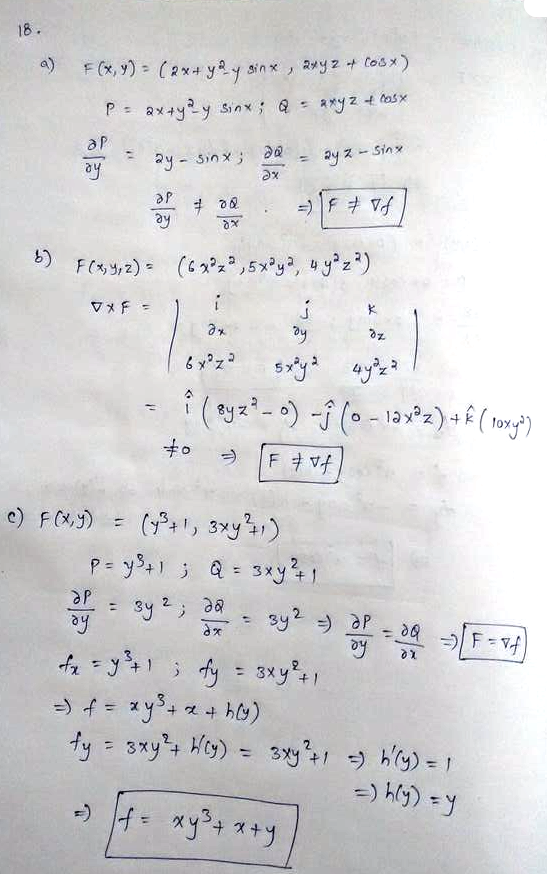 18.
a) F(x,y) = (2x+y²-y sinx , 2xyz + cosx)
P = 2x+y²-y sinx ; Q = 2xyz + cosx
∂P/∂y = 2y - sinx ; ∂Q/∂x = 2yz - sinx
∂P/∂y ≠ ∂Q/∂x . ⇒ F ≠ ∇f
b) F(x,y,z) = (6x²z², 5x²y², 4y²z²)
∇×F = | i j k
∂x ∂y ∂z
6x²z² 5x²y² 4y²z² |
= î (8yz² - 0) - ĵ (0 - 12x²z) + k̂ (10xy²)
≠0 ⇒ F ≠ ∇f
c) F(x,y) = (y³+1, 3xy²+1)
P = y³+1 ; Q = 3xy²+1
∂P/∂y = 3y² ; ∂Q/∂x = 3y² ⇒ ∂P/∂y = ∂Q/∂x ⇒ F = ∇f
fx = y³+1 ; fy = 3xy²+1
⇒ f = xy³ + x + h(y)
fy = 3xy² + h'(y) = 3xy²+1 ⇒ h'(y) = 1
⇒ h(y) = y
⇒ f = xy³ + x + y